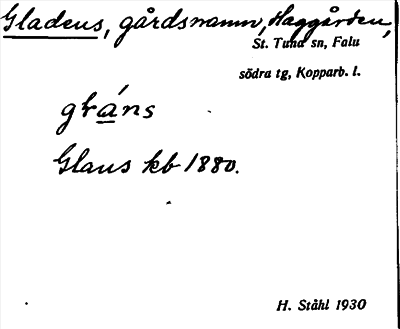 Gladens, gårdsnamn, Haggården,
St. Tuna sn, Falu
södra tg, Kopparb. l.
Glans kb 1880.
H. Ståhl 1930